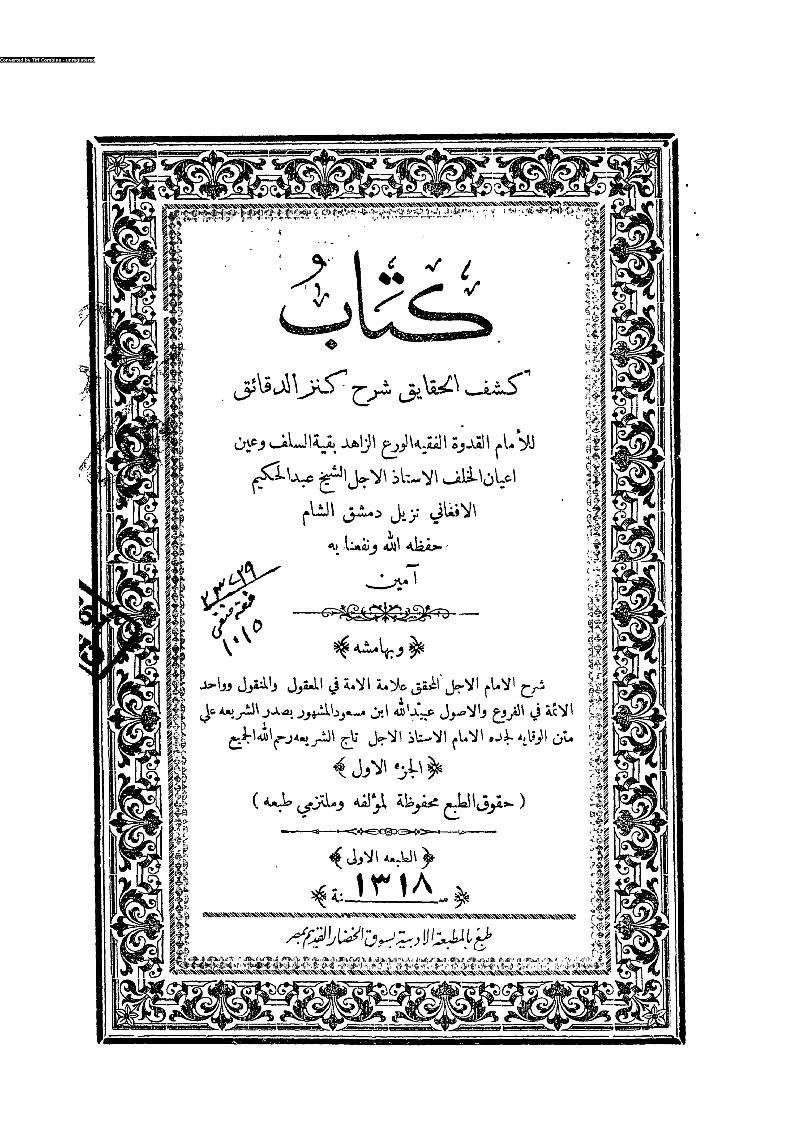 Converted by Tiff Combine - unregistered
كتاب
كشف الحقايق شرح كنز الدقائق
للأمام القدوة الفقيه الورع الزاهد بقية السلف وعين
اعيان الخلف الاستاذ الاجل الشيخ عبد الحكيم
الافغاني نزيل دمشق الشام
حفظه الله ونفعنا به
آمين
٢٣٧٣٩
فقه حنفي
١٠١٥
وبهامشه
شرح الامام الاجل المحقق علامة الامة في المعقول والمنقول وواحد
الائمة في الفروع والاصول عبيدالله ابن مسعود المشهور بصدر الشريعه على
متن الوقايه لجده الامام الاستاذ الاجل تاج الشريعه رحم الله الجميع
الجزء الاول
( حقوق الطبع محفوظة لمؤلفه وملتزمي طبعه )
الطبعه الاولى
سنة ١٣١٨
طبع بالمطبعة الادبية بسوق الخضار القديم بمصر